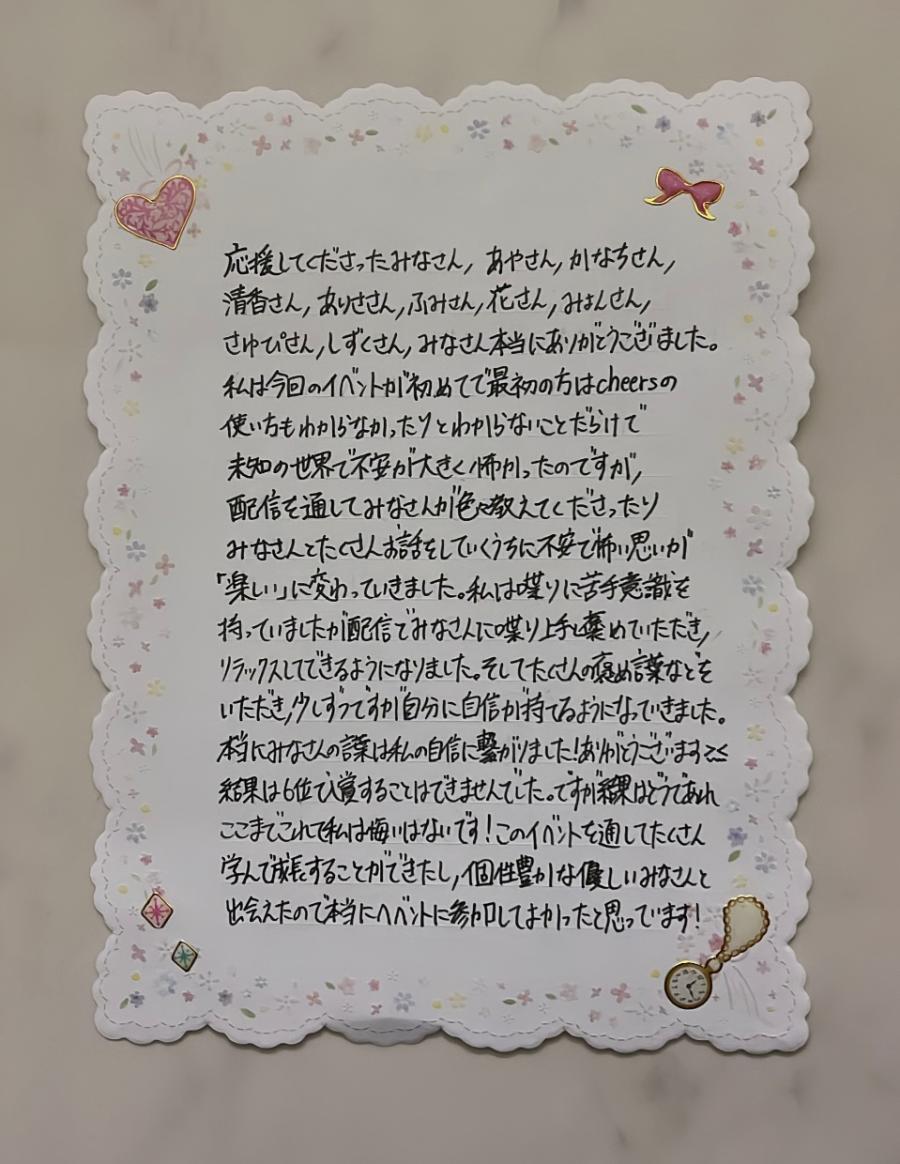 応援してくださったみなさん, あやさん, かなちさん,
清香さん, ありささん, ふみさん, 花さん, みはんさん,
さゆぴさん, しずくさん, みなさん本当にありがとうございました。
私は今回のイベントが初めてで最初の方はcheersの
使い方もわからなかったりとわからないことだらけで
未知の世界で不安が大きく怖かったのですが,
配信を通してみなさんが色々教えてくださったり
みなさんとたくさんお話をしていくうちに不安で怖い思いが
「楽しい」に変わっていきました。私は喋りに苦手意識を
持っていましたが配信でみなさんに喋り上手と褒めていただき,
リラックスしてできるようになりました。そしてたくさんの褒め言葉などを
いただき,少しずつですが自分に自信が持てるようになっていきました。
本当にみなさんの言葉は私の自信に繋がりました!ありがとうございます
結果は6位で入賞することはできませんでした。ですが結果はどうであれ
ここまでこれて私は悔いはないです!このイベントを通してたくさん
学んで成長することができたし,個性豊かな優しいみなさんと
出会えたので本当にイベントに参加してよかったと思っています!